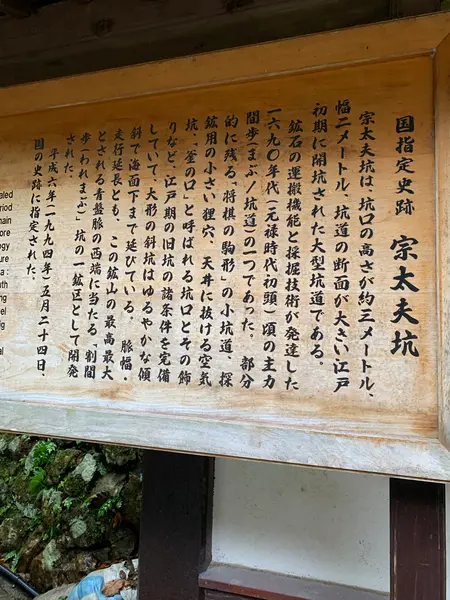 国指定史跡 宗太夫坑
宗太夫坑は、坑口の高さが約三メートル、
幅二メートル、坑道の断面が大きい江戸
初期に開坑された大型坑道である。
鉱石の運搬機能と採掘技術が発達した
一六九〇年代(元禄時代初頭)頃の主力
間歩(まぶ/坑道)の一つであった。 部分
的に残る「将棋の駒形」の小坑道、探
鉱用の小さい狸穴、天井に抜ける空気
坑、「釜の口」と呼ばれる坑口とその飾
りなど、江戸期の旧坑の諸条件を完備
していて、大形の斜坑はゆるやかな傾
斜で海面下まで延びている。 脈幅・
走行延長とも、この鉱山の最高最大
とされる青盤脈の西端に当たる「割間
歩(われまぶ)」坑の一鉱区として開発
された。
平成六年(一九九四年)五月二十四日、
国の史跡に指定された。